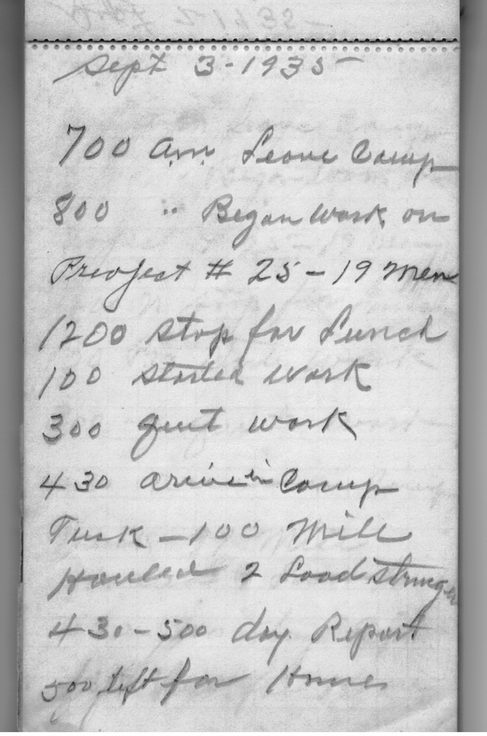 Sept 3-1935
700 a.m. Leave Camp
800 " Began work on
Project # 25-19 men
1200 stop for Lunch
100 started work
300 quit work
430 arive in Camp
Tuck - 100 Mill
Hauled 2 Load stringer
430-500 day Report
500 left for Home